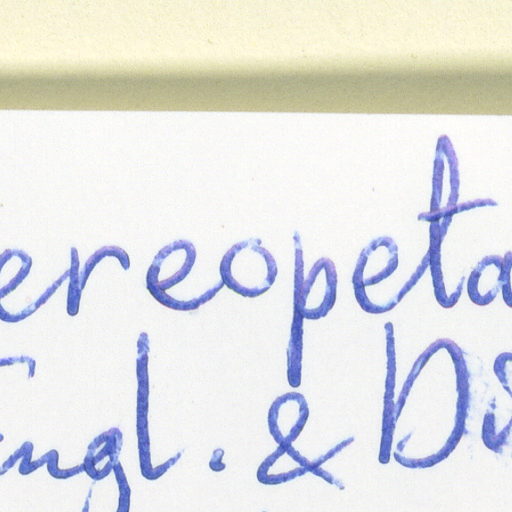 ereopeta
Engl. & Di